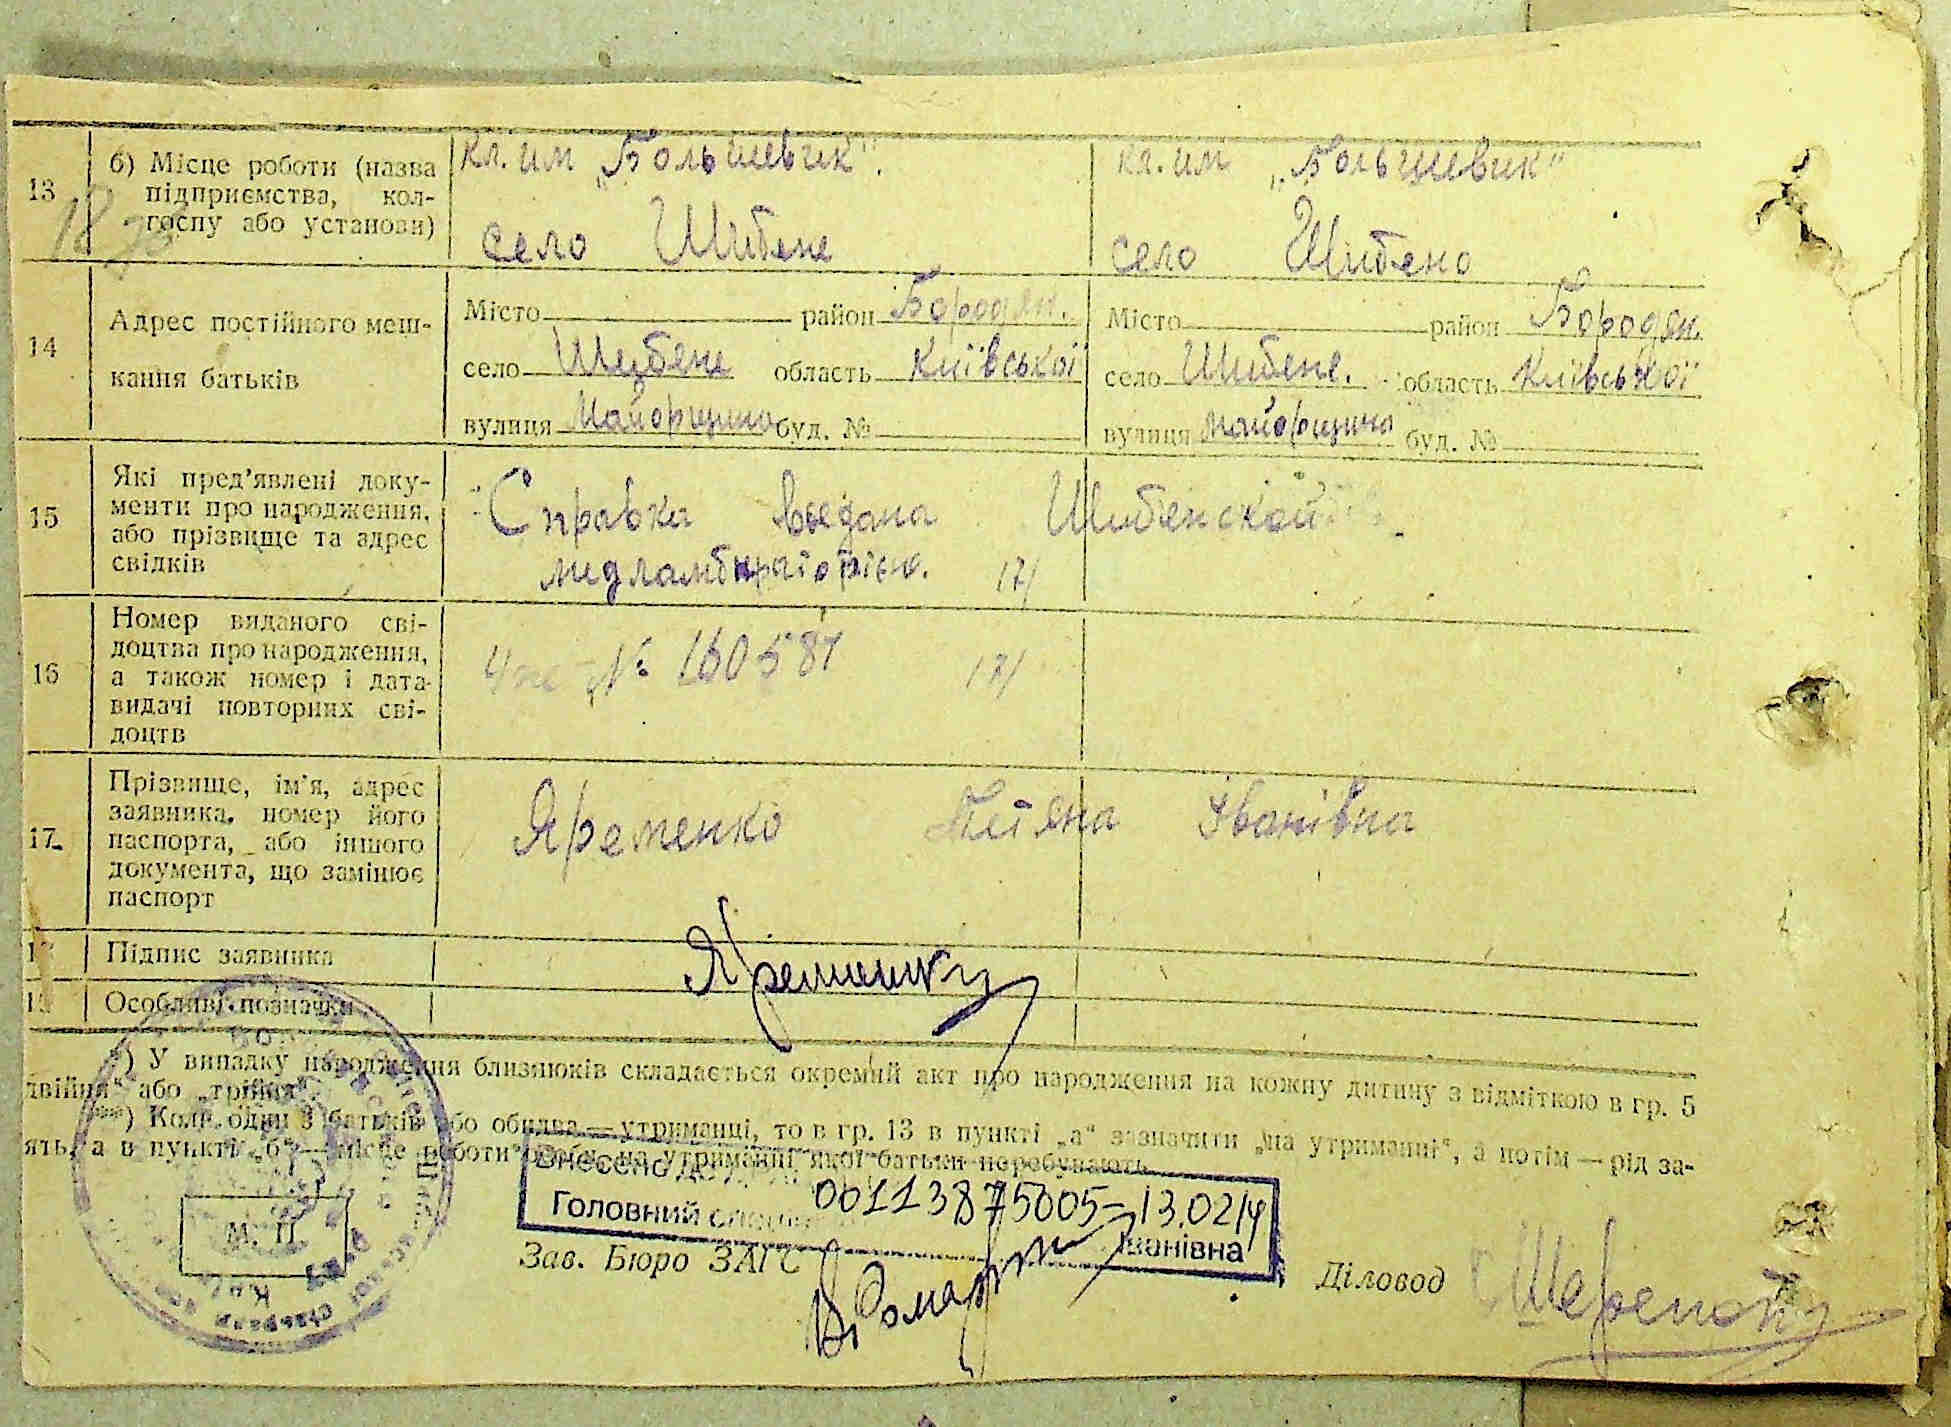 13
б) Місце роботи (назва
підприємства, кол-
госпу або установи)
кл. им „Большевик".
село Шибене
кл. им „Большевик"
село Шибено
14
Адрес постійного меш-
кання батьків
Місто район Бородян.
село Шибене область Київської
вулиця Майорщина буд. №
Місто район Бородян.
село Шибене. область Київської
вулиця Майорщина буд. №
15
Які пред'явлені доку-
менти про народження,
або прізвище та адрес
свідків
Справка выдана Шибенской
17/
16
Номер виданого сві-
доцтва про народження,
а також номер і дата
видачі повторних сві-
доцтв
№ 160587
17/
17
Прізвище, ім'я, адрес
заявника, номер його
паспорта, або іншого
документа, що замінює
паспорт
Яременко Тетяна Іванівна
Підпис заявника
Яременко
Особливі позначки
*) У випадку народження близнюків складається окремий акт про народження на кожну дитину з відміткою в гр. 5
двійня" або „трійня".
**) Коли один з батьків або обидва — утриманці, то в гр. 13 в пункті „а" зазначити „на утриманні", а потім — рід за-
ять, а в пункті „б" — місце роботи особи, на утриманні якої батьки перебувають
Внесено до
00113875005-13.02.14
Головний
Іванівна
М. П.
Зав. Бюро ЗАГС
Діловод